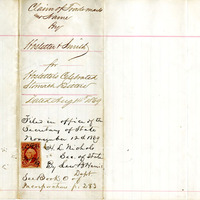 Claim of Trademark
or Name
By
Hostetter & Smith
for
Hostetter's Celebrated
Stomach Bitters
Dated Aug 1869
Filed in office of the
Secretary of State
November 12th 1869
H L Nichols
Sec of State
By Lew B. Harris
Dept
See Book C of
p. 283